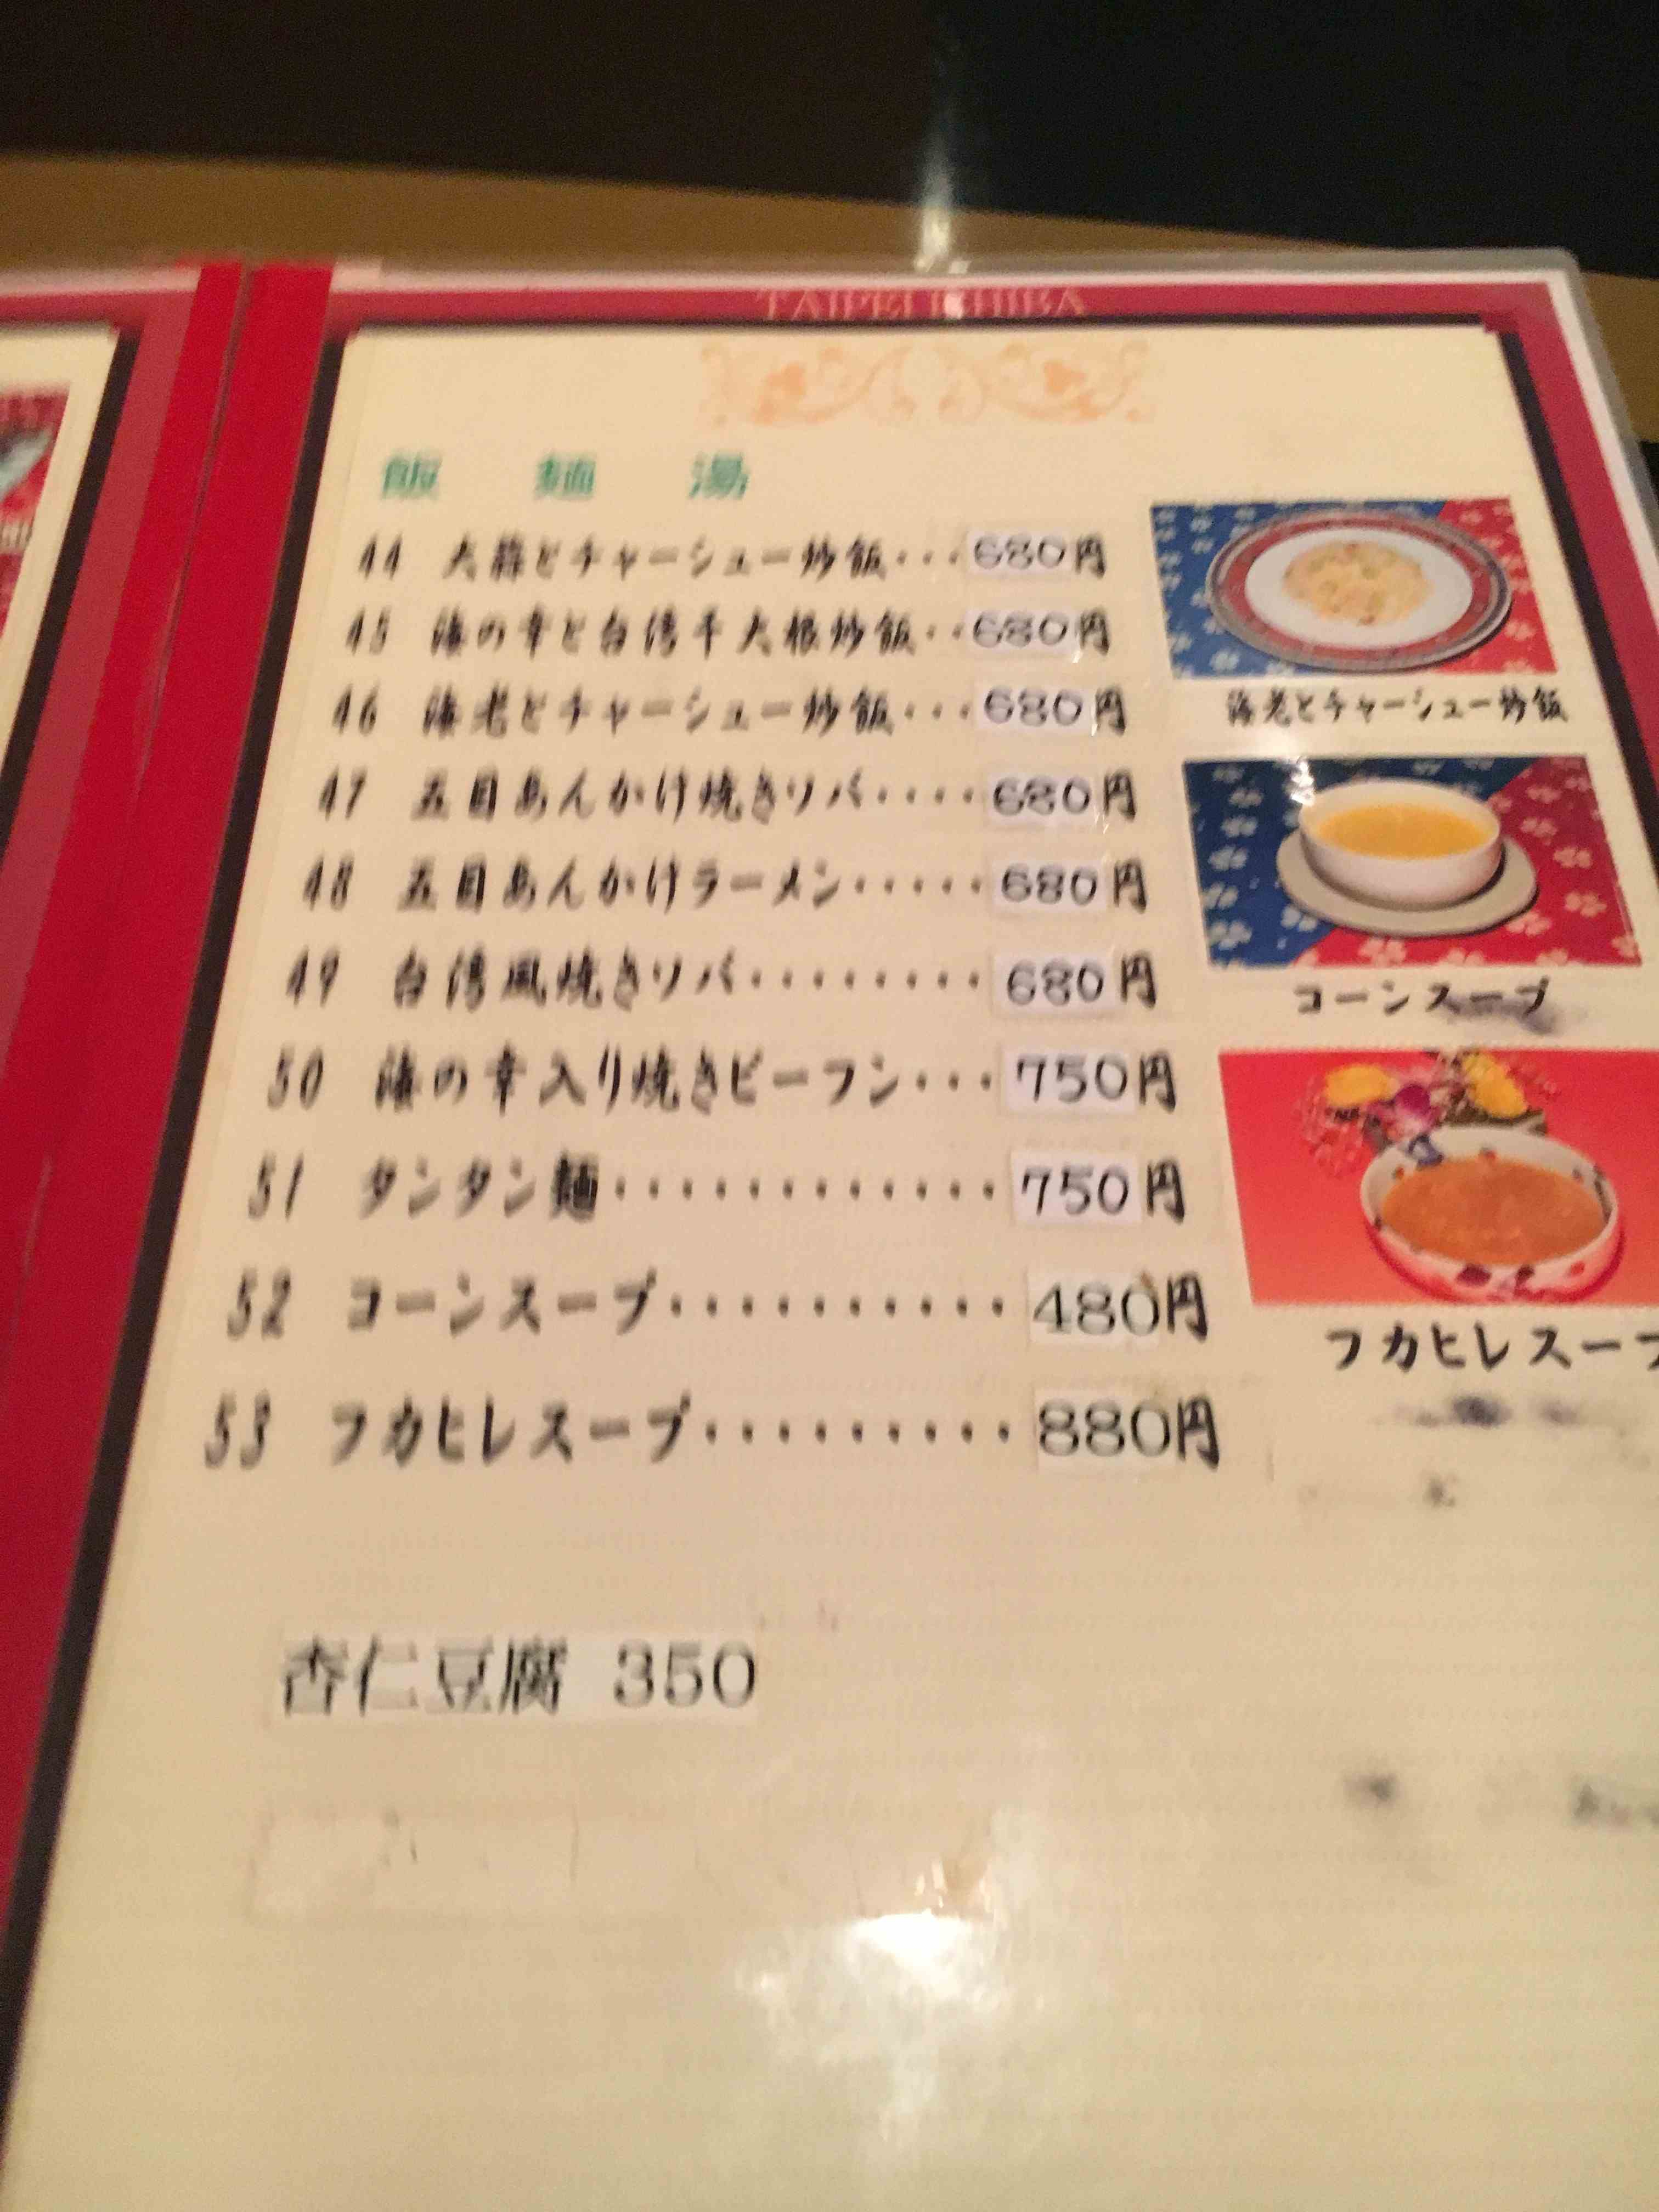 TAIPEI ICHIBA
飯 麺 湯
44 大蒜とチャーシュー炒飯・・・680円
45 海の幸と台湾干大根炒飯・・680円
46 海老とチャーシュー炒飯・・・680円
47 五目あんかけ焼きソバ・・・・680円
48 五目あんかけラーメン・・・・・680円
49 台湾風焼きソバ・・・・・・・・680円
50 海の幸入り焼きビーフン・・・750円
51 タンタン麺・・・・・・・・・・・・750円
52 コーンスープ・・・・・・・・・・・480円
53 フカヒレスープ・・・・・・・・・・880円
海老とチャーシュー炒飯
コーンスープ
フカヒレスープ
杏仁豆腐 350